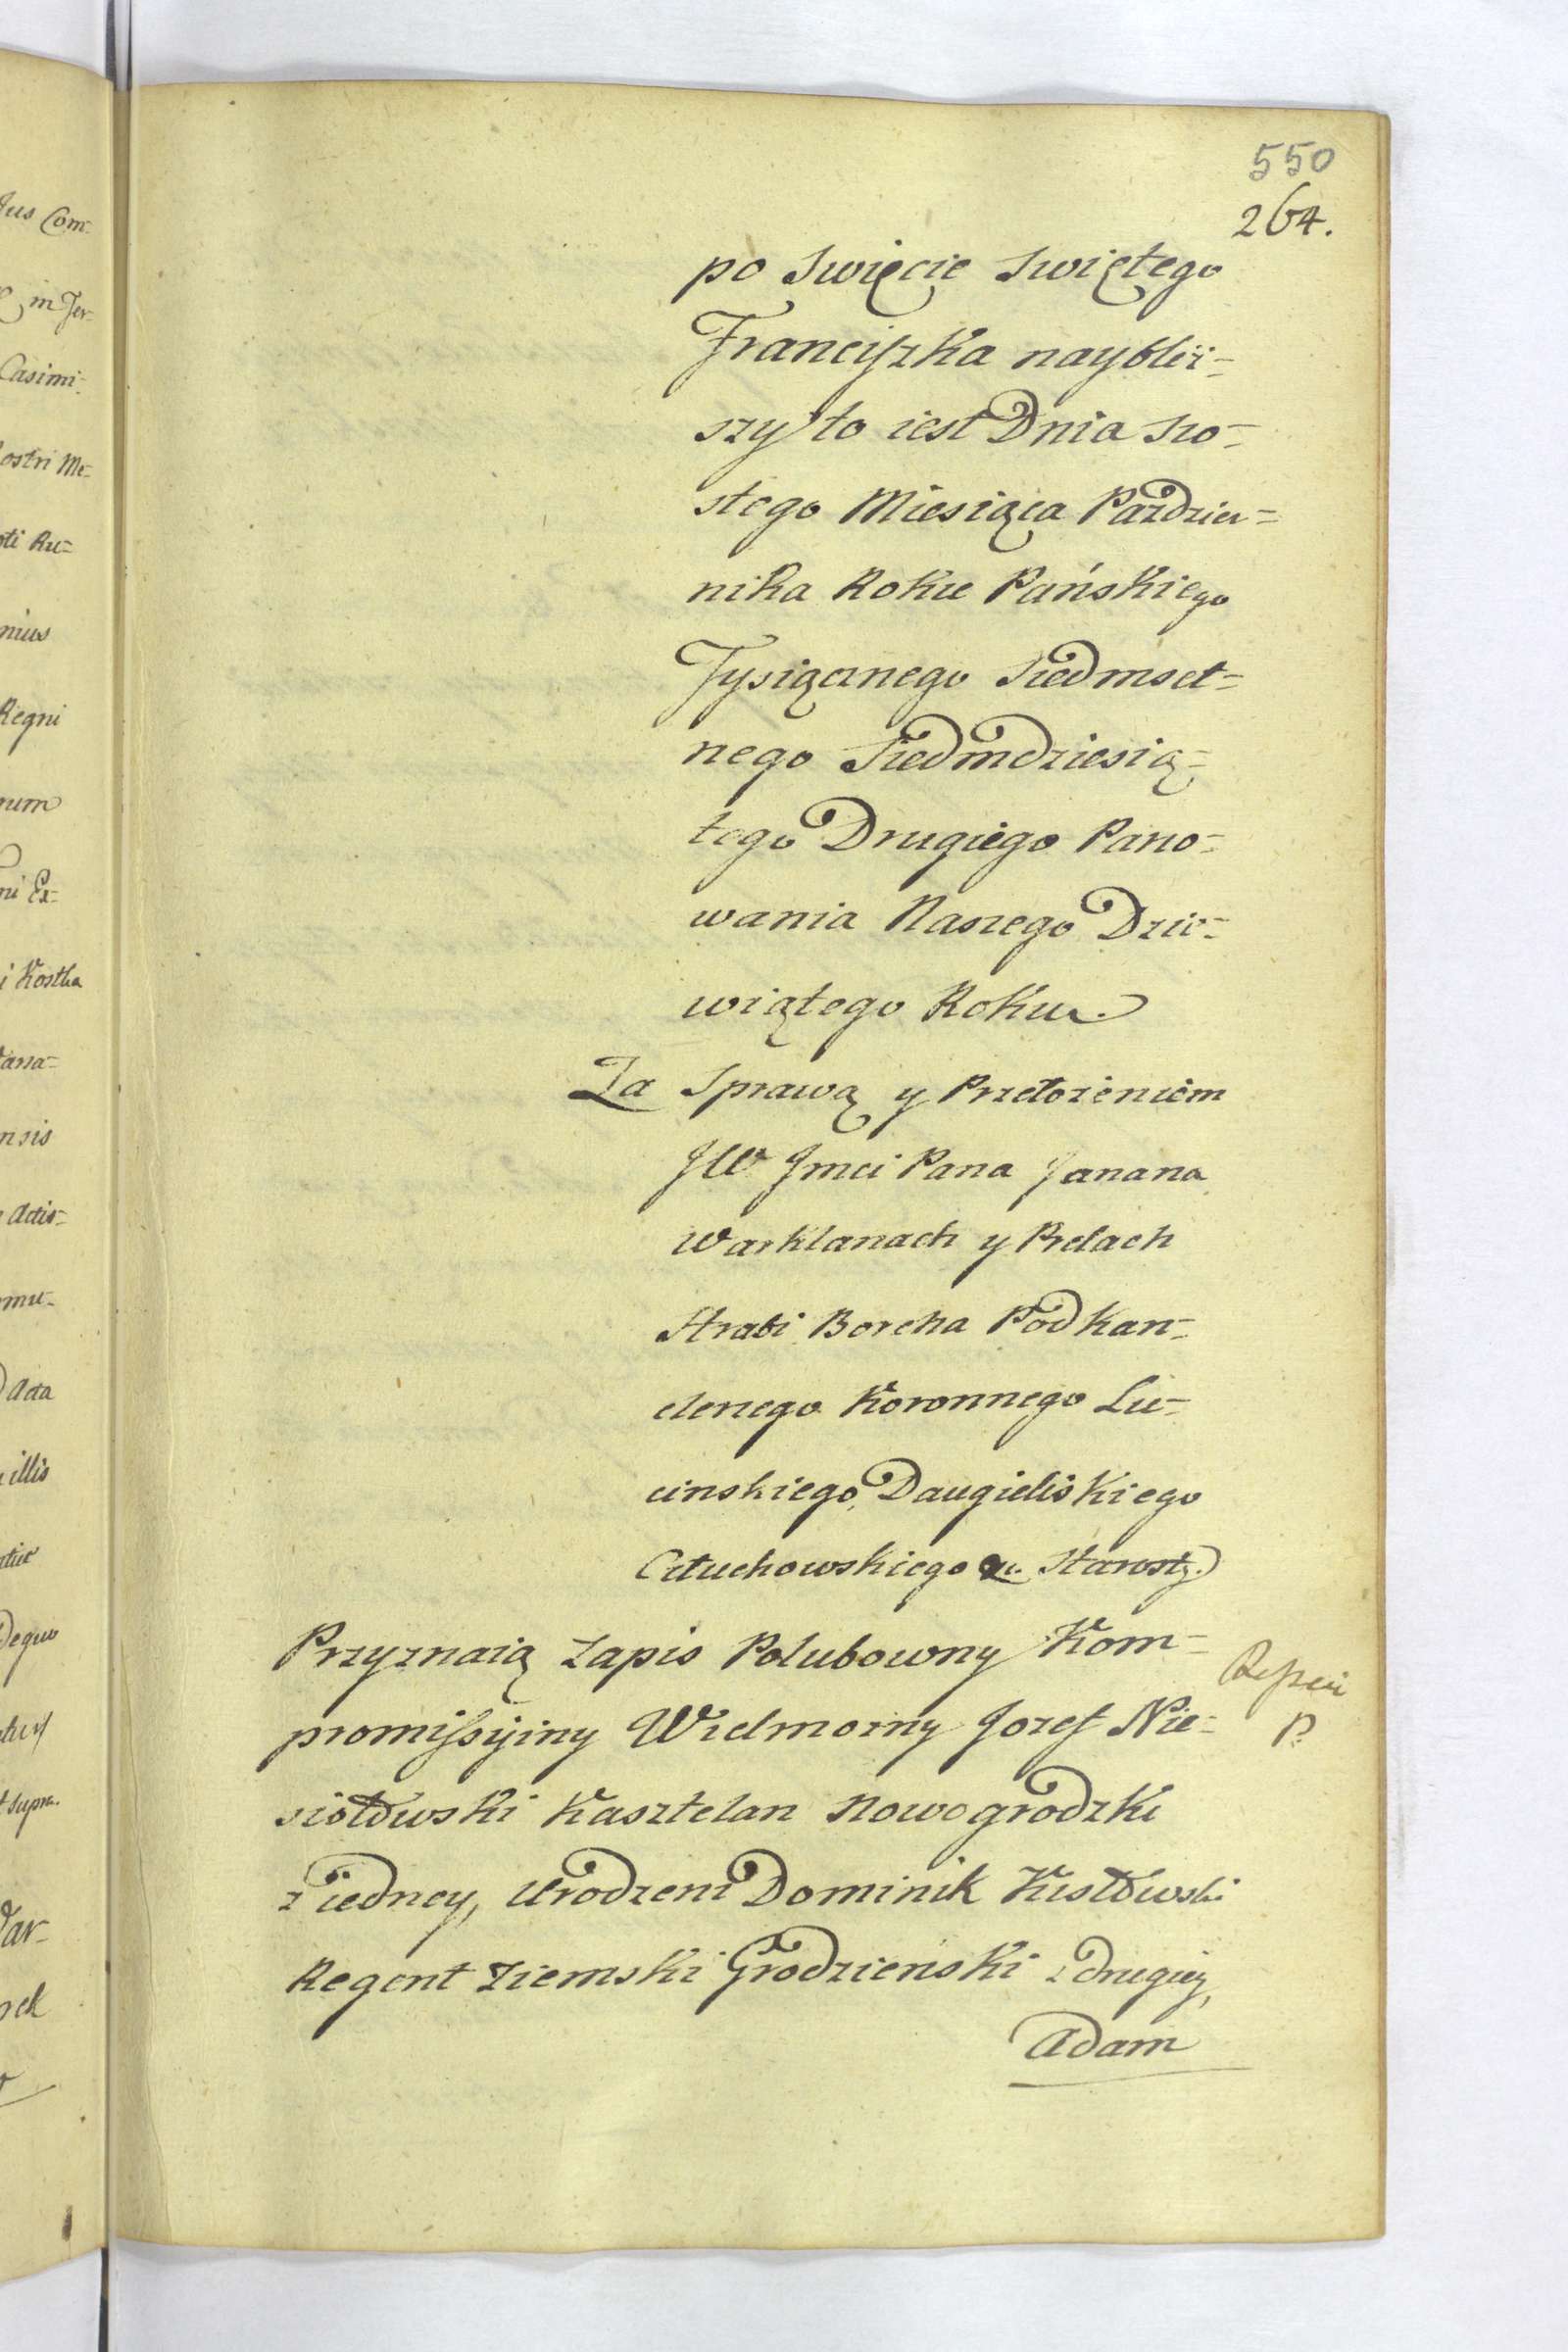 550
264.
po Swięcie Swiętego
Franciszka naybliż-
szy to iest Dnia Szo-
stego Miesiąca Pazdzier=
nika Roku Pańskiego
Tysiącznego Siedmset-
nego Siedmdziesią-
tego Drugiego Pano-
wania Naszego Dzie-
wiątego Roku.
Za Sprawą y Przełożeniem
JW Jmci Pana Janana
Warklanach y Prelach
Hrabi Borcha Podkan-
clerzego Koronnego Lu-
cinskiego, Daugieliskiego
Człuchowskiego &c. Starosty.
Przyznaią Zapis Polubowny Kom-
promissyiny Wielmożny Jozef Nie-
siołowski Kasztelan Nowogrodzki
z iedney, Urodzeni Dominik Kustowski
Regent Ziemski Grodzienski z drugiey,
Adam
P.
Jus Com-
in Ter-
Casimi-
ostri Me-
sti Ru=
nius
Regni
rum
ni Ex-
i Kostka
nsis
Actis-
mu-
Acta
illis
Supra.